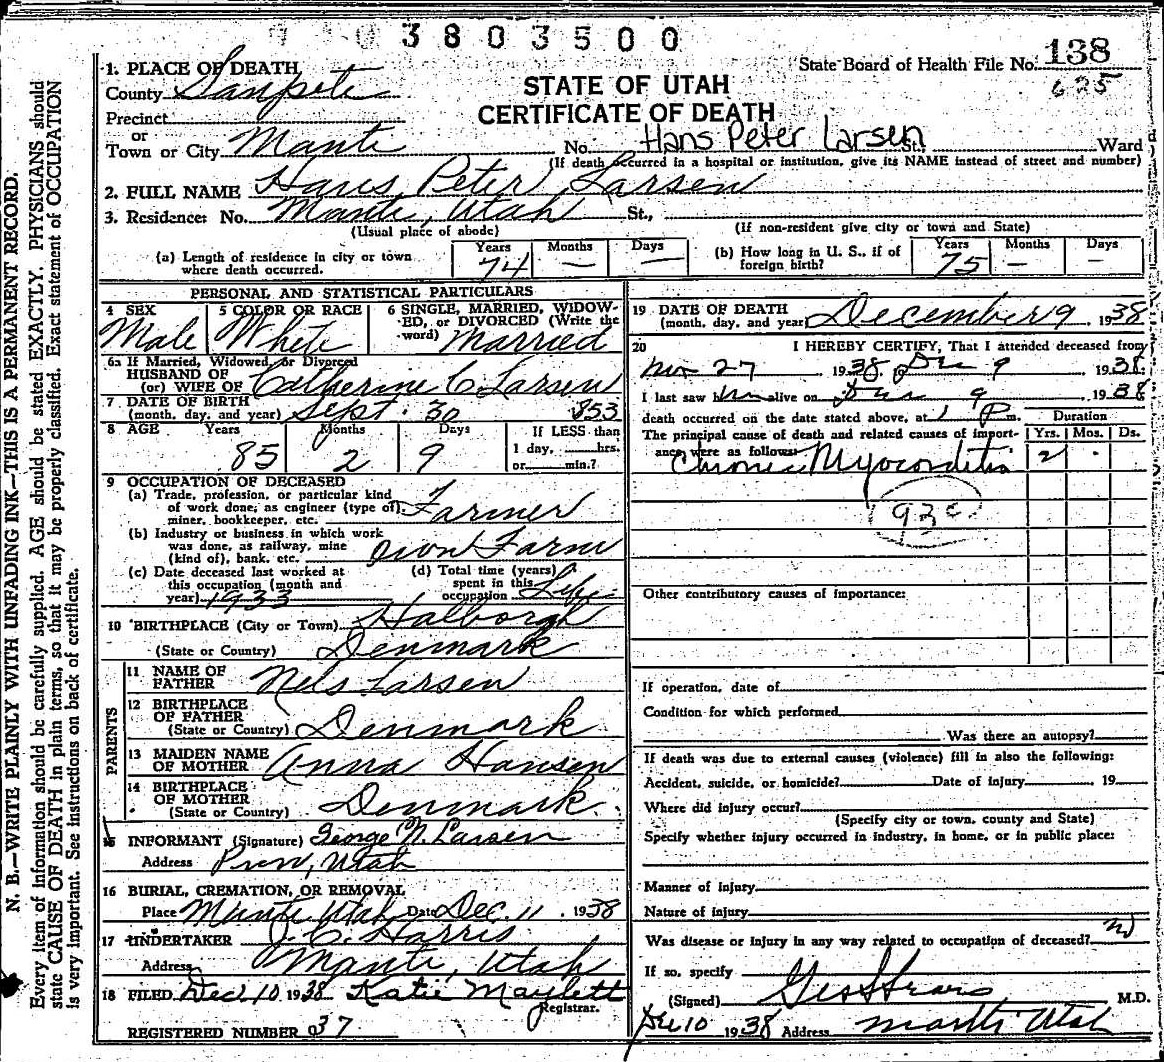 3803500
138
625
State Board of Health File No.
STATE OF UTAH
CERTIFICATE OF DEATH
1. PLACE OF DEATH
County Sanpete
Precinct
or
Town or City Manti No. Hans Peter Larsen St. Ward
(If death occurred in a hospital or institution, give its NAME instead of street and number)
2. FULL NAME Hans Peter Larsen
3. Residence: No. Manti, Utah St.,
(Usual place of abode) (If non-resident give city or town and State)
(a) Length of residence in city or town where death occurred. Years 74 Months — Days —
(b) How long in U. S., if of foreign birth? Years 75 Months — Days —
PERSONAL AND STATISTICAL PARTICULARS
4 SEX Male
5 COLOR OR RACE White
6 SINGLE, MARRIED, WIDOWED, or DIVORCED (Write the word) Married
6a If Married, Widowed, or Divorced
HUSBAND OF
(or) WIFE OF Catherine C. Larsen
7 DATE OF BIRTH
(month, day, and year) Sept. 30 1853
8 AGE Years 85 Months 2 Days 9 If LESS than 1 day, hrs. or min.?
9 OCCUPATION OF DECEASED
(a) Trade, profession, or particular kind
of work done, as engineer (type of), Farmer
miner, bookkeeper, etc.
(b) Industry or business in which work
was done, as railway, mine
(kind of), bank, etc. Own Farm
(c) Date deceased last worked at
this occupation (month and
year) 1933
(d) Total time (years)
spent in this
occupation Life
10 BIRTHPLACE (City or Town) Halborgh
(State or Country) Denmark
PARENTS
11 NAME OF FATHER Nels Larsen
12 BIRTHPLACE OF FATHER
(State or Country) Denmark
13 MAIDEN NAME OF MOTHER Anna Hansen
14 BIRTHPLACE OF MOTHER
(State or Country) Denmark
15 INFORMANT (Signature) George N. Larsen
Address Provo, Utah
16 BURIAL, CREMATION, OR REMOVAL
Place Manti Utah Date Dec. 11, 1938
17 UNDERTAKER J. C. Harris
Address Manti, Utah
18 FILED Dec 10 1938 Katie Maylett
Registrar.
REGISTERED NUMBER 37
19 DATE OF DEATH
(month, day, and year) December 9, 1938
20 I HEREBY CERTIFY, That I attended deceased from
Nov 27 1938 Dec 9 1938
I last saw him alive on Dec 9 1938
death occurred on the date stated above, at 1 P m.
Duration
The principal cause of death and related causes of importance were as follows: Yrs. Mos. Ds.
Chronic Myocarditis 2
93c
Other contributory causes of importance:
If operation, date of
Condition for which performed
Was there an autopsy?
If death was due to external causes (violence) fill in also the following:
Accident, suicide, or homicide? Date of injury 19
Where did injury occur?
(Specify city or town, county and State)
Specify whether injury occurred in industry, in home, or in public place:
Manner of injury
Nature of injury
Was disease or injury in any way related to occupation of deceased? no
If so, specify
(Signed) M.D.
Dec 10 1938 Address Manti Utah
N. B.—WRITE PLAINLY WITH UNFADING INK—THIS IS A PERMANENT RECORD.
Every item of information should be carefully supplied. AGE should be stated EXACTLY. PHYSICIANS should
state CAUSE OF DEATH in plain terms, so that it may be properly classified. Exact statement of OCCUPATION
is very important. See instructions on back of certificate.